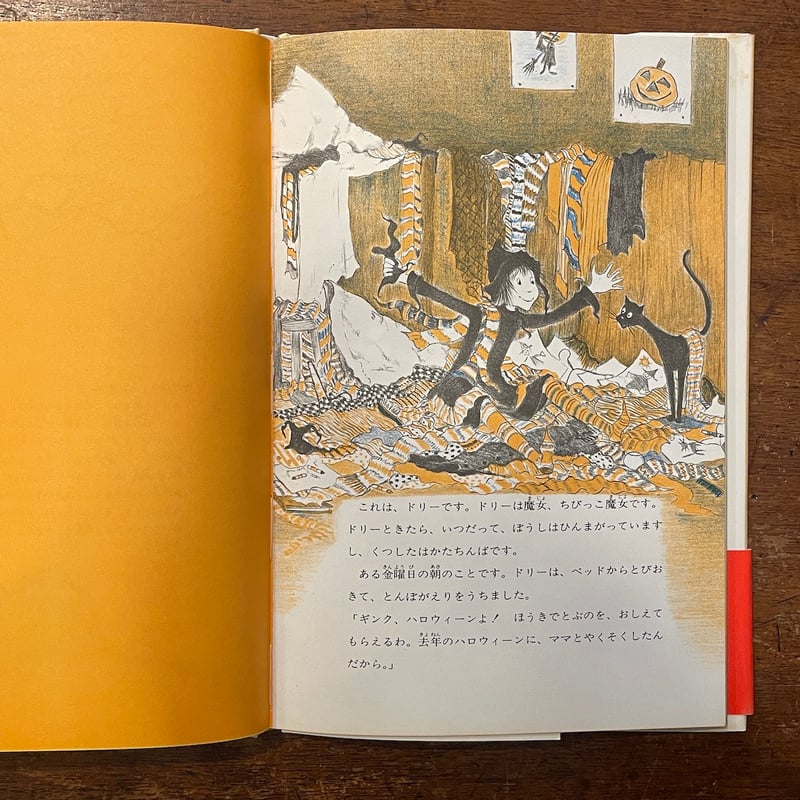 これは、ドリーです。ドリーは魔女、ちびっこ魔女です。
ドリーときたら、いつだって、ぼうしはひんまがっています
し、くつしたはかたちんばです。
ある金曜日の朝のことです。ドリーは、ベッドからとびお
きて、とんぼがえりをうちました。
「ギンク、ハロウィーンよ！　ほうきでとぶのを、おしえて
もらえるわ。去年のハロウィーンに、ママとやくそくしたん
だから。」